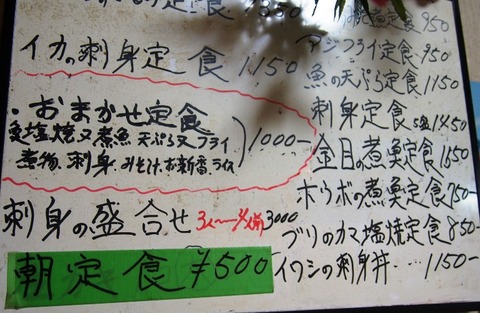 定食 1350
イカの刺身定食 1,150
・おまかせ定食
魚塩焼又煮魚 天ぷら又フライ
煮物、刺身 みそ汁、お新香、ライス
1000-
刺身の盛合せ 3人〜4人前 3000
朝定食 ¥500
煮定食 950
アジフライ定食 950
魚の天ぷら定食 1150
刺身定食 5品 1450
金目の煮魚定食 1550
ホウボの煮魚定食 750-
ブリのカマ塩焼定食 850-
イワシの刺身丼…1150-